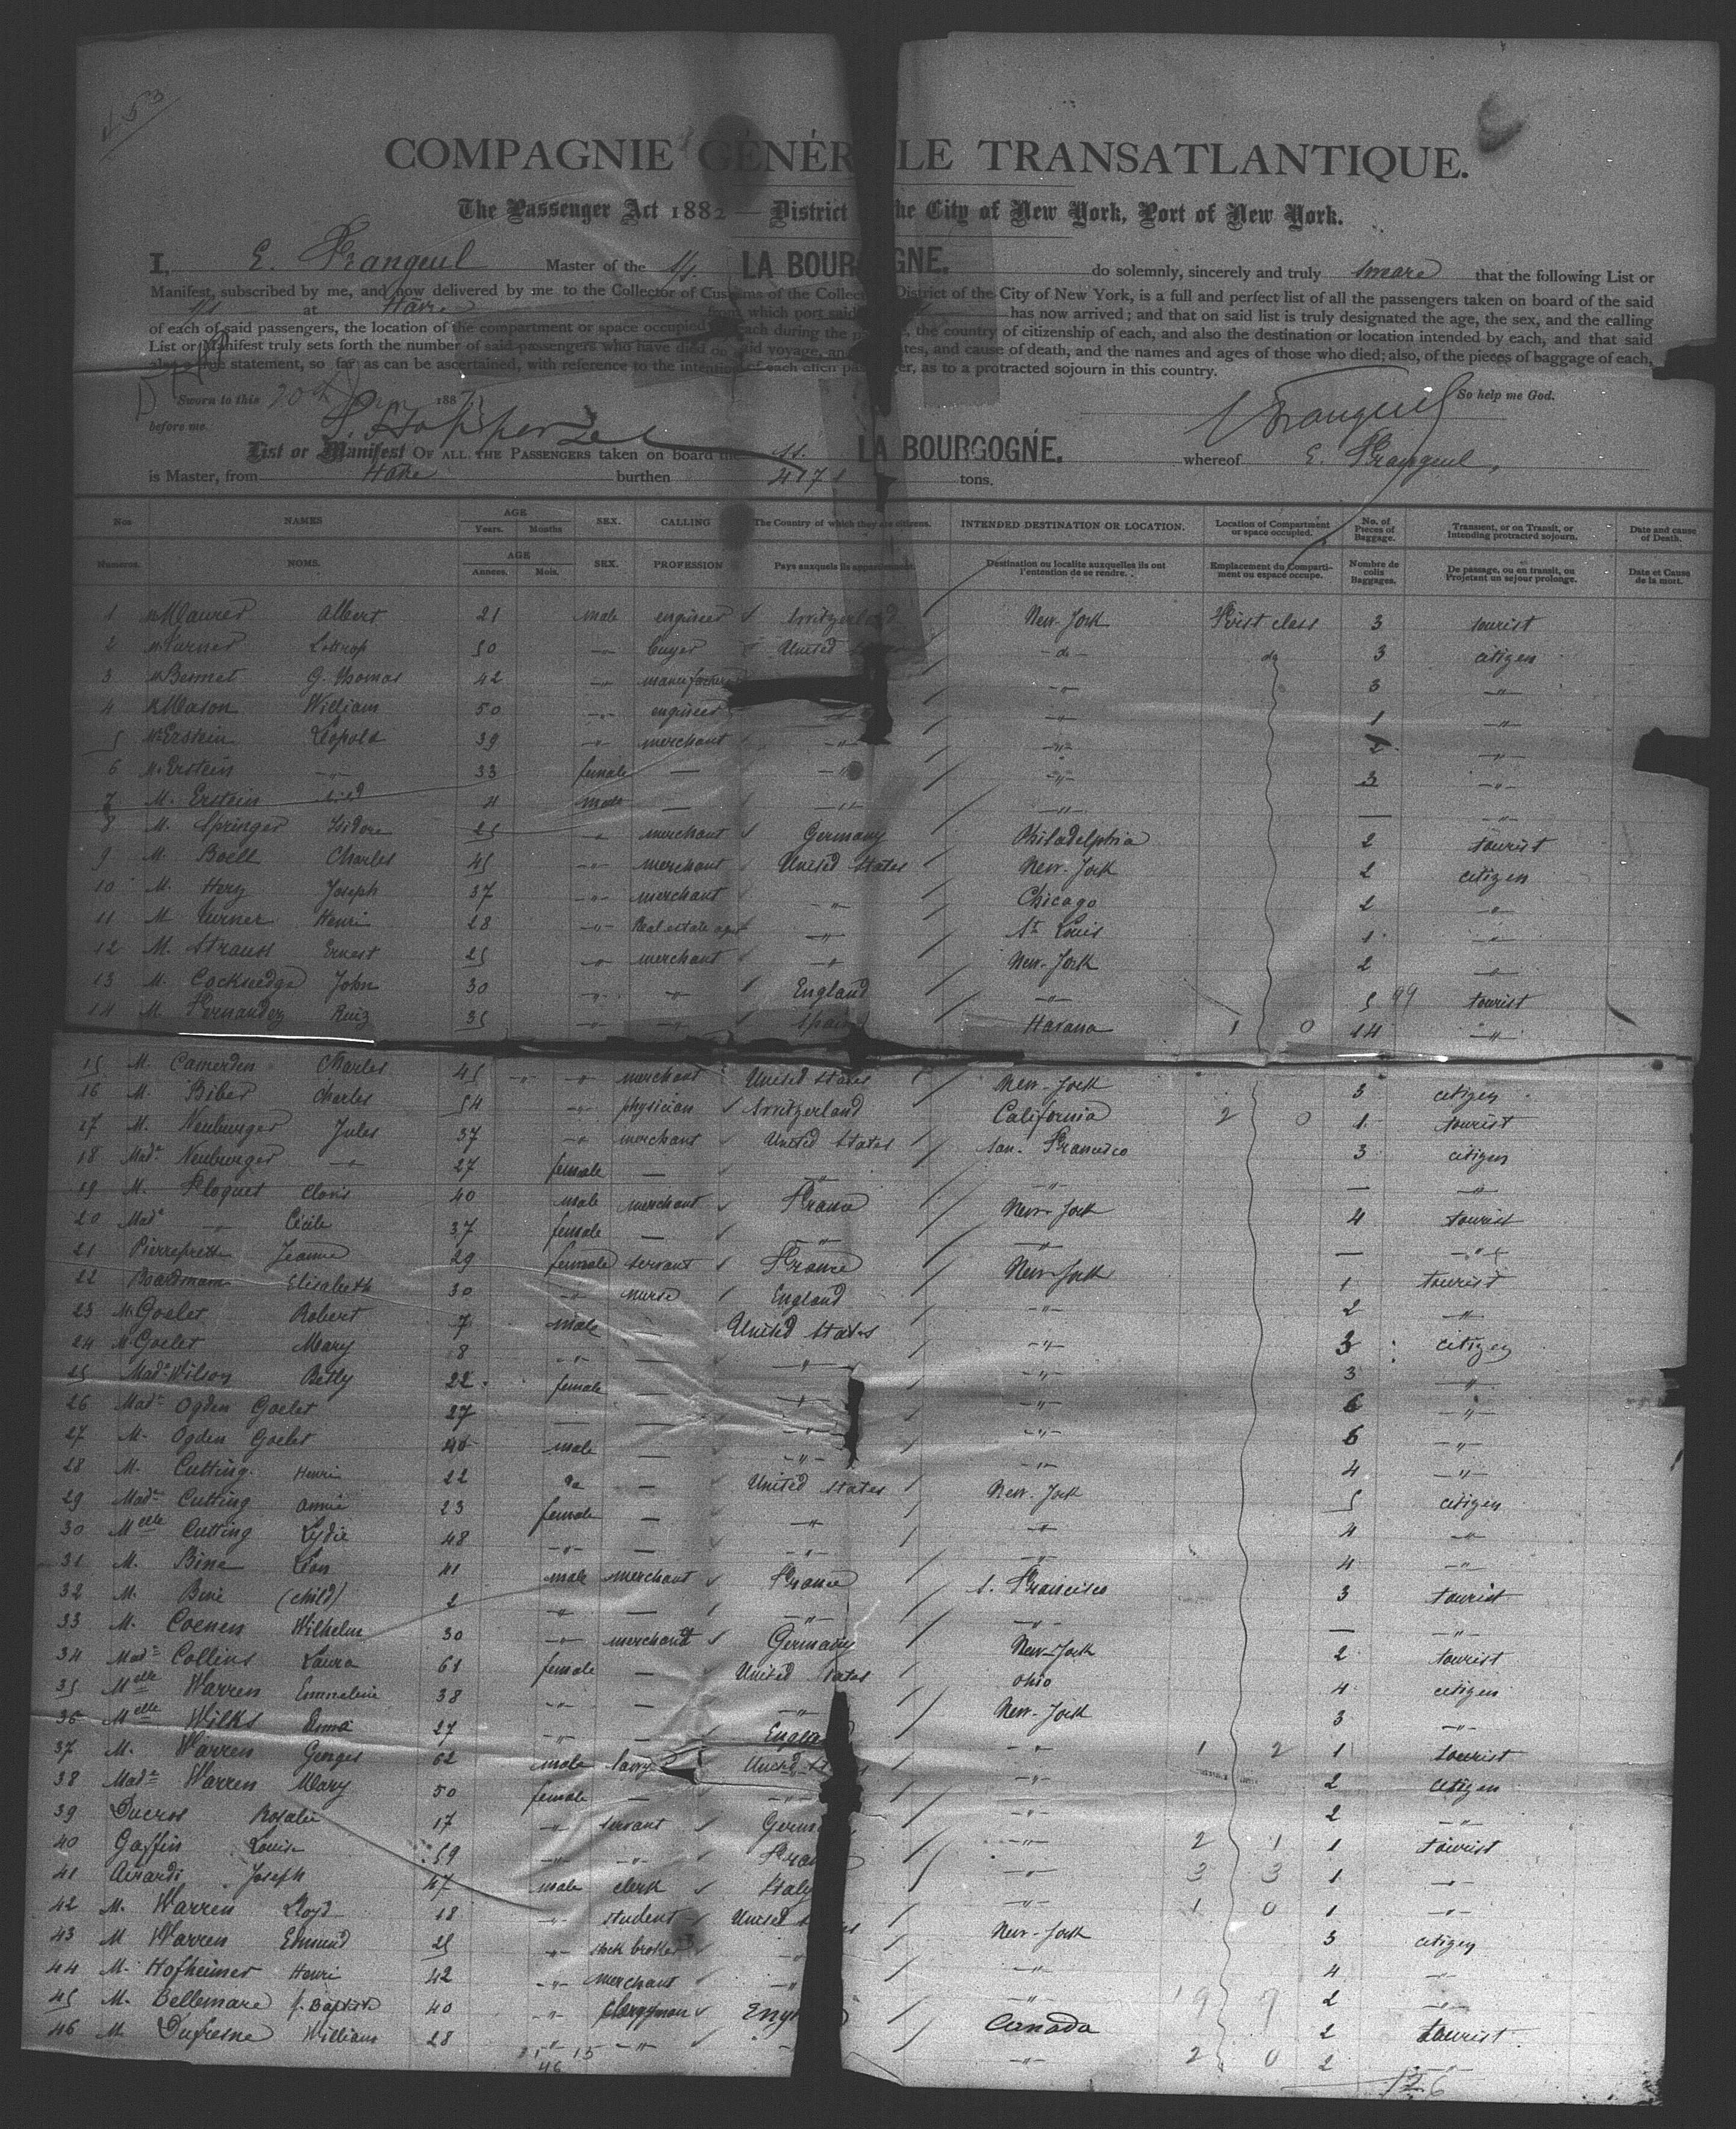 COMPAGNIE GÉNÉR LE TRANSATLANTIQUE.
The Passenger Act 1882 — District he City of New York, Port of New York.
I, E. Frangeul Master of the LA BOUR GNE. do solemnly, sincerely and truly swear that the following List or
Manifest, subscribed by me, and now delivered by me to the Collector of Customs of the Collec District of the City of New York, is a full and perfect list of all the passengers taken on board of the said
at Havre from which port said has now arrived; and that on said list is truly designated the age, the sex, and the calling
of each of said passengers, the location of the compartment or space occupied each during the p , the country of citizenship of each, and also the destination or location intended by each, and that said
List or Manifest truly sets forth the number of said passengers who have died on said voyage, an tes, and cause of death, and the names and ages of those who died; also, of the pieces of baggage of each,
also a true statement, so far as can be ascertained, with reference to the intention of each alien pas er, as to a protracted sojourn in this country.
Sworn to this 20th 188 So help me God.
before me. E. Frangeul
List or Manifest OF ALL THE PASSENGERS taken on board the ss. LA BOURGOGNE. whereof E. Frangeul,
is Master, from Havre burthen tons.
Nos NAMES AGE Years. Months SEX. CALLING The Country of which they are citizens. INTENDED DESTINATION OR LOCATION. Location of Compartment or space occupied. No. of Pieces of Baggage. Transient, or on Transit, or Intending protracted sojourn. Date and cause of Death.
Numeros. NOMS. AGE Annees. Mois. SEX. PROFESSION Pays auxquels ils appartiennent. Destination ou localite auxquelles ils ont l'entention de se rendre. Emplacement du Compartiment ou espace occupe. Nombre de colis Baggages. De passage, ou en transit, ou Projetant un sejour prolonge. Date et Cause de la mort.
1 M Maurer Albert 21 male engineer Switzerland New-York First class 3 tourist
2 M Turner Lottrop 50 -"- buyer United -do- do 3 citizen
3 M Bennet G. Thomas 42 -"- manufacturer -"- 3 -"-
4 M Mason William 50 -"- engineer -"- -"- 1 -"-
5 M Erstein Léopold 39 -"- merchant -"- -"- 2 -"-
6 M. Erstein -"- 33 female — -"- -"- 3 -"-
7 M. Erstein child 4 male — -"- -"- — -"-
8 M. Springer Isidore 25 -"- merchant Germany Philadelphia 2 tourist
9 M. Boell Charles 45 -"- merchant United States New-York 2 citizen
10 M. Herz Joseph 37 -"- merchant -"- Chicago 2 -"-
11 M Turner Henri 28 -"- Real estate agt -"- St Louis 1 -"-
12 M. Strauss Ernest 25 -"- merchant -"- New-York 2 -"-
13 M. Cocksedge John 30 -"- -"- England -"- 5 99 tourist
14 M. Fernandez Ruiz 35 -"- -"- Spain Havana 1 0 14 -"-
15 M. Camerden Charles 45 -"- -"- merchant United States New-York 3 citizen
16 M. Biber Charles 54 -"- physician Switzerland California 2 0 1 tourist
17 M. Neuburger Jules 37 -"- merchant United States San-Francisco 3 citizen
18 Made Neuburger -"- 27 female — -"- -"- — -"-
19 M. Floquet Clovis 40 male merchant France New-York 4 tourist
20 Made -"- Cécile 37 female — -"- -"- — -"-
21 Pierreprette Jeanne 29 female servant France New-York 1 tourist
22 Boardman Elisabeth 30 -"- nurse England -"- 2 -"-
23 M. Goelet Robert 7 male — United States -"- 3 citizen
24 M. Goelet Mary 8 -"- — -"- -"- 3 -"-
25 Made Wilson Betty 22 female — -"- -"- 6 -"-
26 Made Ogden Goelet 27 — — -"- -"- 6 -"-
27 M. Ogden Goelet 40 male — -"- -"- 4 -"-
28 M. Cutting Henri 22 do — United States New-York 5 citizen
29 Made Cutting Annie 23 female — -"- -"- 4 -"-
30 Melle Cutting Lydie 48 -"- — -"- -"- 4 -"-
31 M. Bine Léon 41 male merchant France S. Francisco 3 tourist
32 M. Bine (child) 2 -"- — -"- -"- — -"-
33 M. Coenen Wilhelm 30 -"- merchant Germany New-York 2 tourist
34 Made Collins Laura 61 female — United States Ohio 4 citizen
35 Melle Warren Emmeline 38 -"- — -"- New-York 3 -"-
36 Melle Wilks Emma 27 -"- — Engla -"- 1 2 1 tourist
37 M. Warren Georges 62 male United St -"- 2 citizen
38 Made Warren Mary 50 female — -"- -"- 2 -"-
39 Ducros Rosalie 17 -"- servant Germ -"- 2 1 1 tourist
40 Gaffin Louise 59 -"- -"- Fra -"- 3 3 1 -"-
41 Airardi Joseph 47 male clerk Italy -"- 1 0 1 -"-
42 M. Warren Lloyd 18 -"- student United es New-York 3 citizen
43 M Warren Edmund 25 -"- stock broker -"- -"- 4 -"-
44 M. Hofheimer Henri 42 -"- merchant -"- -"- 2 -"-
45 M. Bellemare J. Baptiste 40 -"- clergyman Eng Canada 2 tourist
46 M. Dufresne William 28 -"- -"- - -"- 2 0 2 -"-
46 126